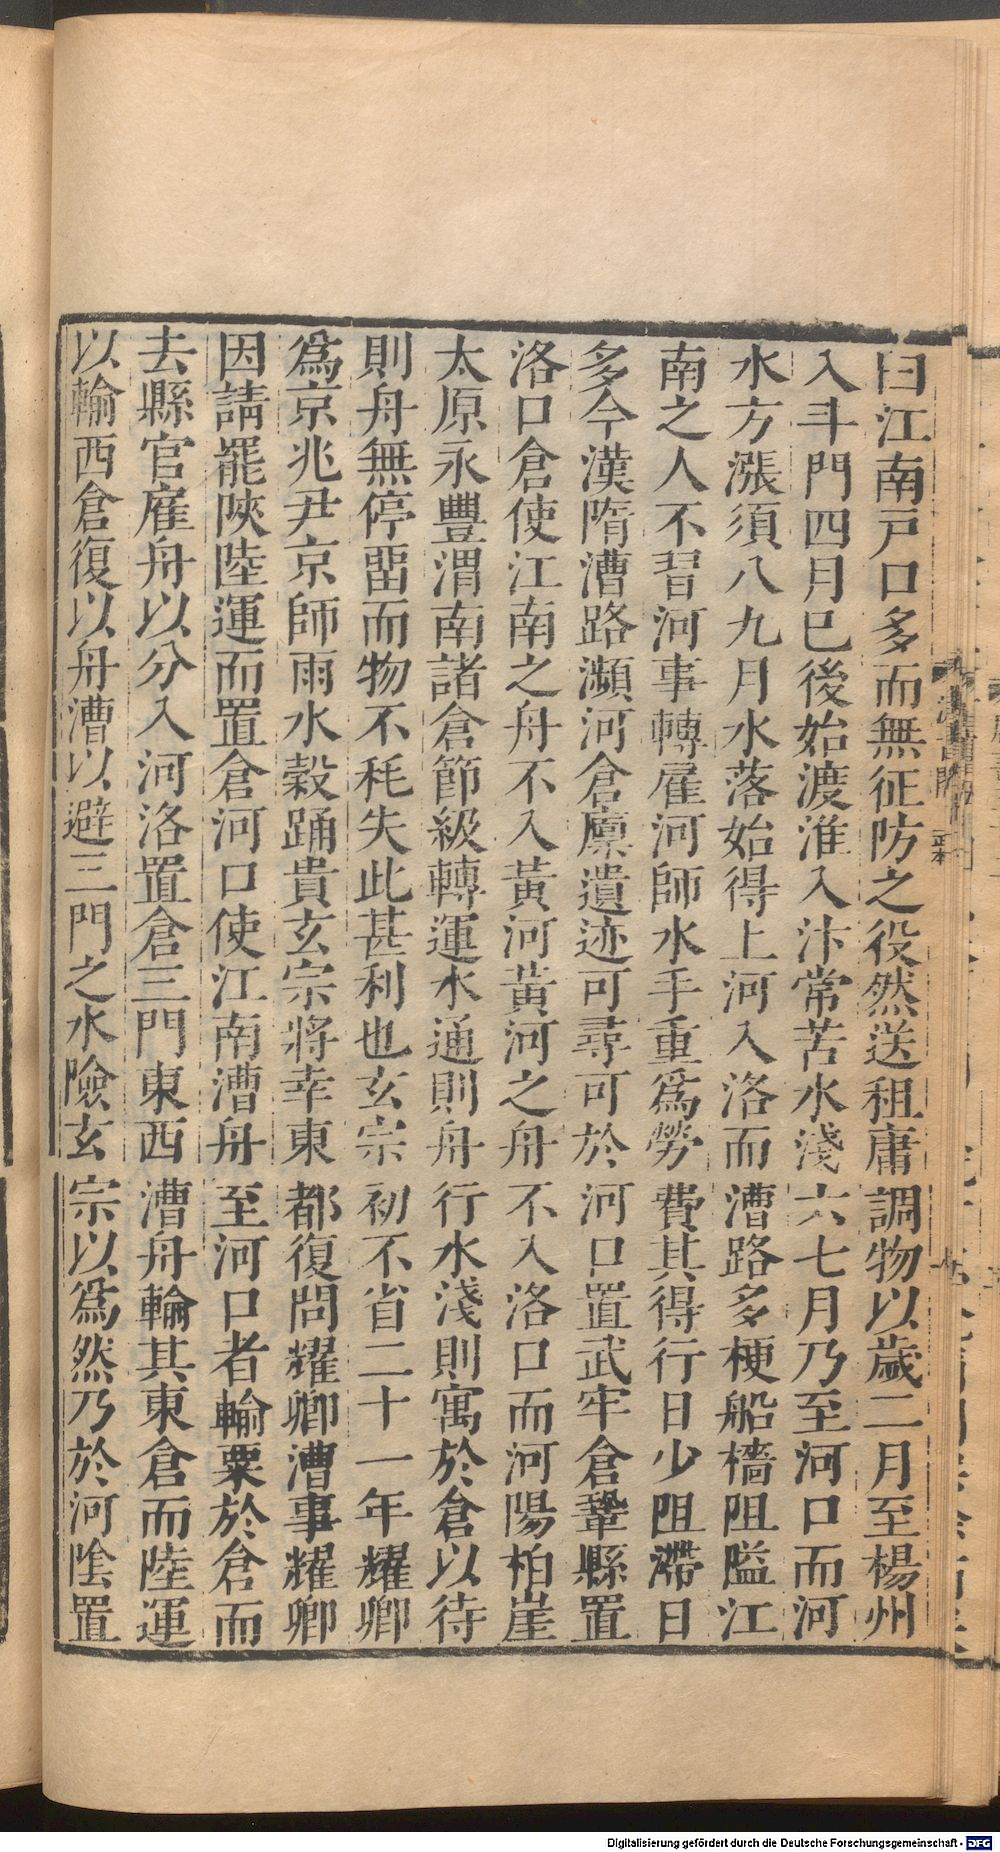 曰江南戸口多而無征防之役然送租庸調物以歲二月至楊州
入斗門四月已後始渡淮入汴常苦水淺六七月乃至河口而河
水方漲須八九月水落始得上河入洛而漕路多梗船檣阻隘江
南之人不習河事轉雇河師水手重爲勞費其得行日少阻滯日
多今漢隋漕路瀕河倉廪遺迹可尋可於河口置武牢倉鞏縣置
洛口倉使江南之舟不入黃河黃河之舟不入洛口而河陽柏崖
太原永豐渭南諸倉節級轉運水通則舟行水淺則寓於倉以待
則舟無停畱而物不秏失此甚利也玄宗初不省二十一年耀卿
爲京兆尹京師雨水穀踊貴玄宗將幸東都復問耀卿漕事耀卿
因請罷陝陸運而置倉河口使江南漕舟至河口者輸粟於倉而
去縣官雇舟以分入河洛置倉三門東西漕舟輸其東倉而陸運
以輸西倉復以舟漕以避三門之水險玄宗以爲然乃於河隂置
Digitalisierung gefördert durch die Deutsche Forschungsgemeinschaft - DFG